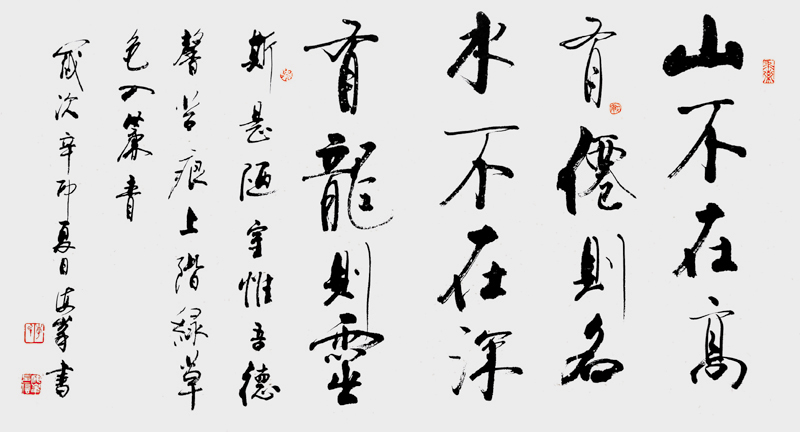 山不在高
有僊則名
水不在深
有龍則靈
斯是陋室惟吾德
馨苔痕上階綠草
色入簾青
歲次辛卯夏日海峯書